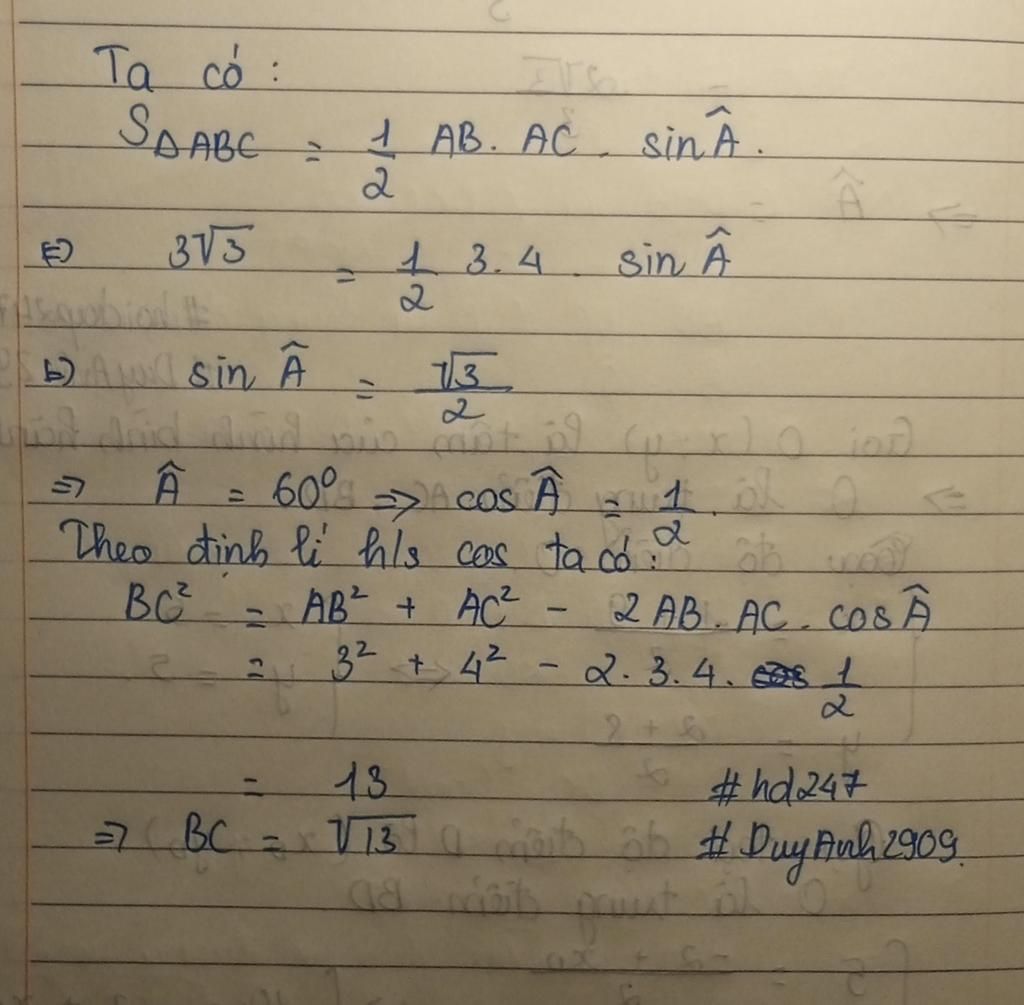 Ta có:
S△ABC = 1/2 AB. AC. sin Â.
⇔ 3√3 = 1/2 3.4. sin Â
⇔ sin Â = √3/2
⇒ Â = 60° ⇒ cos Â = 1/2.
Theo định lí h/s cos ta có:
BC² = AB² + AC² - 2AB. AC. cos Â
= 3² + 4² - 2.3.4. 1/2
= 13 #hd247
⇒ BC = √13 #DuyAnh2909.